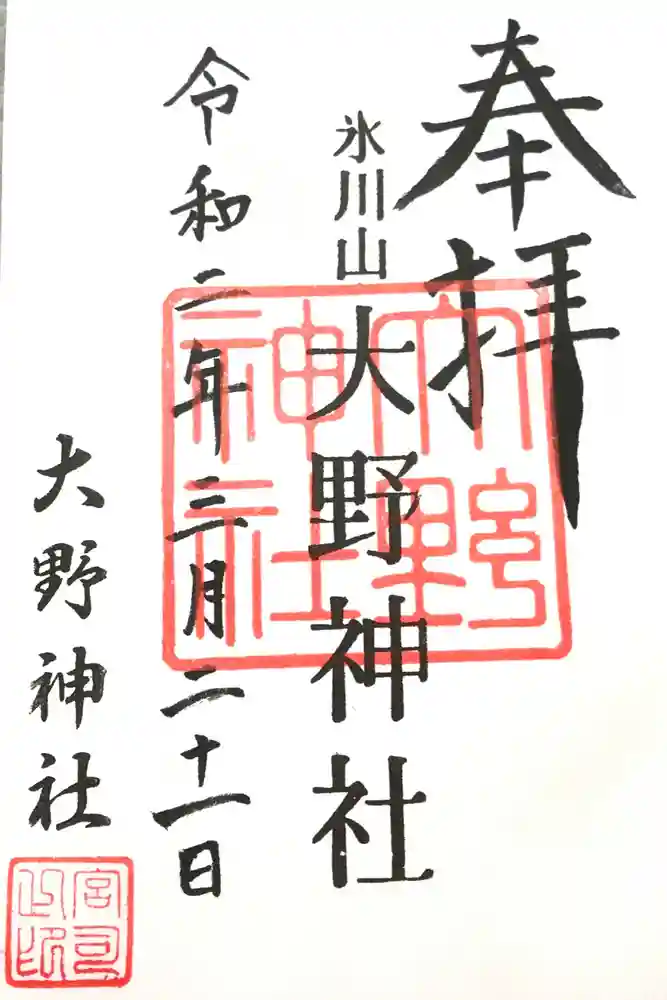 奉拝
氷川山
大野神社
大野神社
令和二年三月二十一日
大野神社
宮司之印